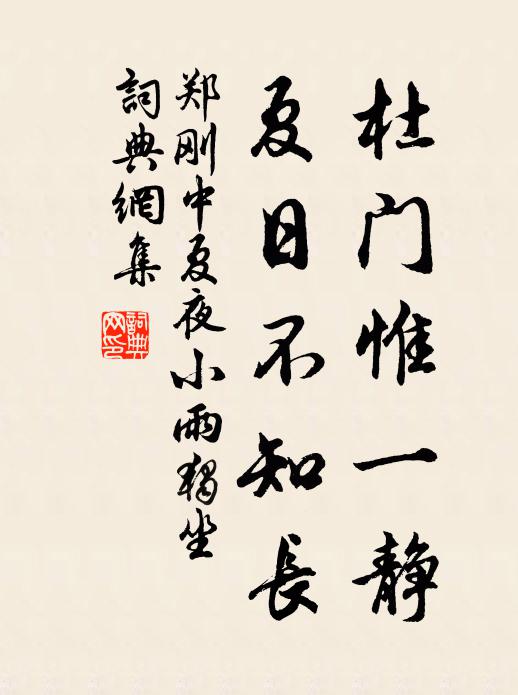 杜门惟一静
夏日不知長
郑刚中夏夜小雨獨坐
詞典網集
詞典網印